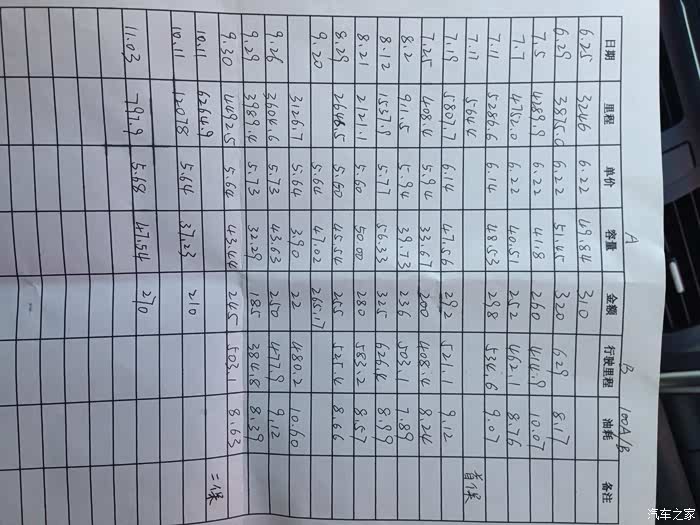 A B 100A/B
日期 里程 单价 容量 金额 行驶里程 油耗 备注
6.25 3246 6.22 49.84 310
6.29 3875.0 6.22 51.45 320 629 8.17
7.5 4289.9 6.22 41.8 260 414.9 10.07
7.7 4752.0 6.22 40.51 252 462.1 8.76
7.11 5286.6 6.14 48.53 298 534.6 9.07
7.17 5644 首保
7.19 5807.7 6.14 47.56 292 521.1 9.12
7.25 408.4 5.94 33.67 200 408.4 8.24
8.2 911.5 5.94 39.73 236 503.1 7.89
8.12 1537.9 5.77 56.33 325 626.4 8.99
8.21 2121.1 5.60 50.00 280 583.2 8.57
8.29 2646.5 5.60 45.54 255 525.4 8.66
9.20 5.64 47.02 265.17
3126.7 5.64 3.90 22 480.2 10.60
9.26 3604.6 5.73 43.63 250 477.9 9.12
9.29 3989.4 5.73 32.29 185 384.8 8.39
9.30 4492.5 5.64 43.44 245 503.1 8.63
10.11 6264.9 二保
10.11 12078 5.64 37.23 210
11.03 797.9 5.68 47.54 270
汽车之家